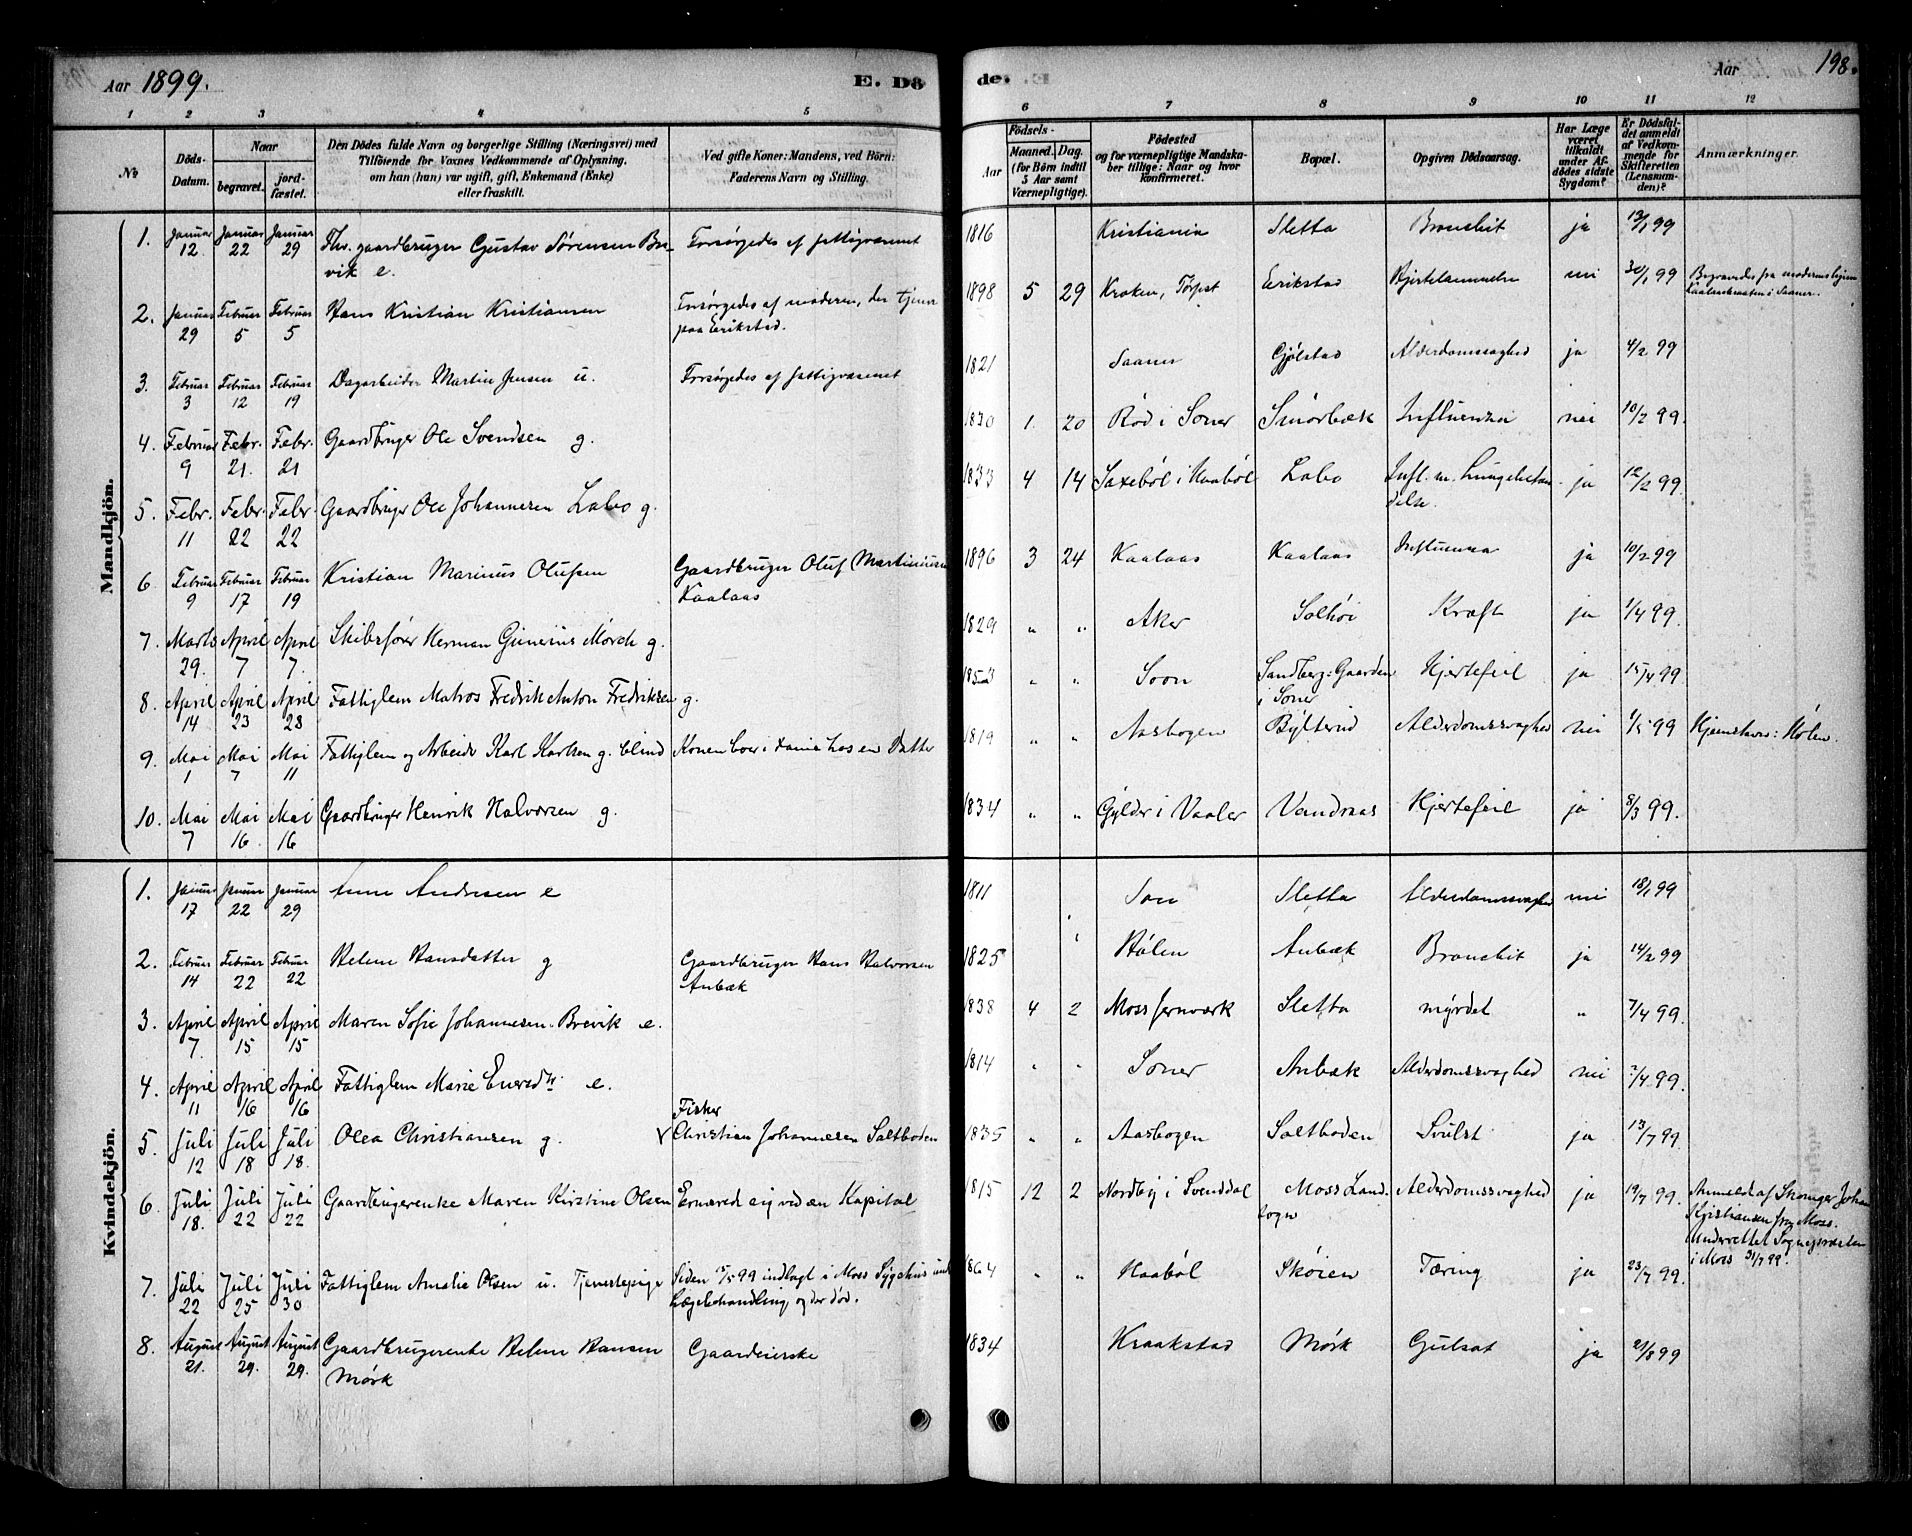 Aar 1899.
E. Dö
de.
Aar
198.
1 2 3 4 5
6 7 8 9 10 11 12
No
Döds-
Datum.
Naar
begravet.
jord-
fæstet.
Den Dödes fulde Navn og borgerlige Stilling (Næringsvei) med
Tilföiende for Voxnes Vedkommende af Oplysning,
om han (hun) var ugift, gift, Enkemand (Enke)
eller fraskilt.
Ved gifte Koner: Mandens, ved Börn:
Faderens Navn og Stilling.
Födsels-
Aar
Maaned. Dag.
(for Börn indtil
5 Aar samt
Værnepligtige).
Födested
og for værnepligtige Mandska-
ber tillige: Naar og hvor
konfirmeret.
Bopæl.
Opgiven Dödsaarsag.
Har Læge
været
tilkaldt
under Af-
dödes sidste
Sygdom?
Er Dödsfal-
det anmeldt
af Vedkom-
mende for
Skifteretten
(Lensman-
den)?
Anmærkninger.
Mandkjön.
1. Januar 12 Januar 22 Januar 29 Fhv. gaardbruger Gustav Sörensen Bre-
vik e. Forsörgedes af fattigvæsenet 1816 Kristiania Sletta Bronchit ja 13/1 99
2. Januar 29 Februar 5 Februar 5 Hans Kristian Kristiansen Forsörgedes af moderen, der tjener
paa Erikstad. 1898 5 29 Kroken, Erikstad Hjertelammelse nei 30/1 99 Begravedes fra moderens hjem
i Saaner.
3. Februar 3 Februar 12 Februar 19 Dagarbeider Martin Jensen u. Forsörgedes af fattigvæsenet 1821 Saaner Gjölstad Alderdomssvaghed ja 4/2 99
4. Februar 9 Febr. 21. Febr. 21 Gaardbruger Ole Svendsen g. 1830 1. 20 Röd i Soner Smörbæk Influenza nei 10/2 99.
5. Febr. 11 Febr. 22 Febr. 22 Gaardbruger Ole Johannesen Labo g. 1833 4 14 Saxeböl i Haaböl Labo Infl. m. Lungebetæn-
delse. ja 12/2 99.
6. Februar 9 Februar 17 Februar 19 Kristian Marinus Olufsen Gaardbruger Oluf Martiniusen
Kaalaas 1896 3 24 Kaalaas Kaalaas Influensa ja 10/2 99
7. Marts 29. April 7 April 7. Skibsförer Herman Gunerius Mörch g. 1829 " " Aker Solhöi Kræft ja 1/4 99.
8. April 14 April 23 April 28 Fattiglem Matros Fredrik Anton Fredriksen g. 1853 " " Soon Sandberg-Gaarden
i Soner Hjertefeil ja 15/4 99.
9. Mai 1 Mai 7 Mai 11 Fattiglem og Arbeider Karl Karlsen g. blind Konen boer i hos en Datter 1819 " " Aasbogen Bylterud Alderdomssvaghed nei 1/5 99 Hjemstavn: Hölen.
10. Mai 7 Mai 16 Mai 16 Gaardbruger Henrik Halvorsen g. 1834 " " Gylder i Vaaler Vandraas Hjertefeil ja 8/5 99.
Kvindekjön.
1. Januar 17 Januar 22 Januar 29 Anne Andresen e 1811 Son Sletta Alderdomssvaghed nei 18/1 99
2. Februar 14 Februar 22 Februar 22 Helene Hansdatter g Gaardbruger Hans Halvorsen
Anbæk 1825 Hölen Anbæk Bronchit ja 14/2 99
3. April 7. April 15 April 15 Maren Sofie Johannesen-Brevik e. 1838 4 2 Moss Jernværk Sletta myrdet " 7/4 99.
4. April 11 April 16 April 16 Fattiglem Marie e. 1814 " " Soner Anbæk Alderdomssvaghed nei /4 99.
5. Juli 12 Juli 18 Juli 18. Olea Christiansen g. Fisker
Christian Johannesen Saltboden 1835 " " Aasbogen Saltboden Svulst ja 13/7 99.
6. Juli 18. Juli 22 Juli 22 Gaardbrugerenke Maren Kirstine Olsen Ernæred sig ved en Kapital 1815 12 2 Nordby i Svenddal Moss Land-
sogn Alderdomssvaghed ja 19/7 99. Anmeldt af Johan
Kristiansen fra Moss.
Underrettet Sognepresten
i Moss 31/7 99.
7. Juli 22 Juli 25 Juli 30 Fattiglem Amalie Olsen u. Tjenestepige Siden /5 99 indlagt i Moss Sygehus under
Lægebehandling, og der död. 1864 " " Haaböl Sköien Tæring ja 23/7 99.
8. August 21. August 29. August 29. Gaardbrugerenke Helene Hansen
Mörk Gaardeierske 1834 Kraakstad Mörk Gulsot ja 21/8 99